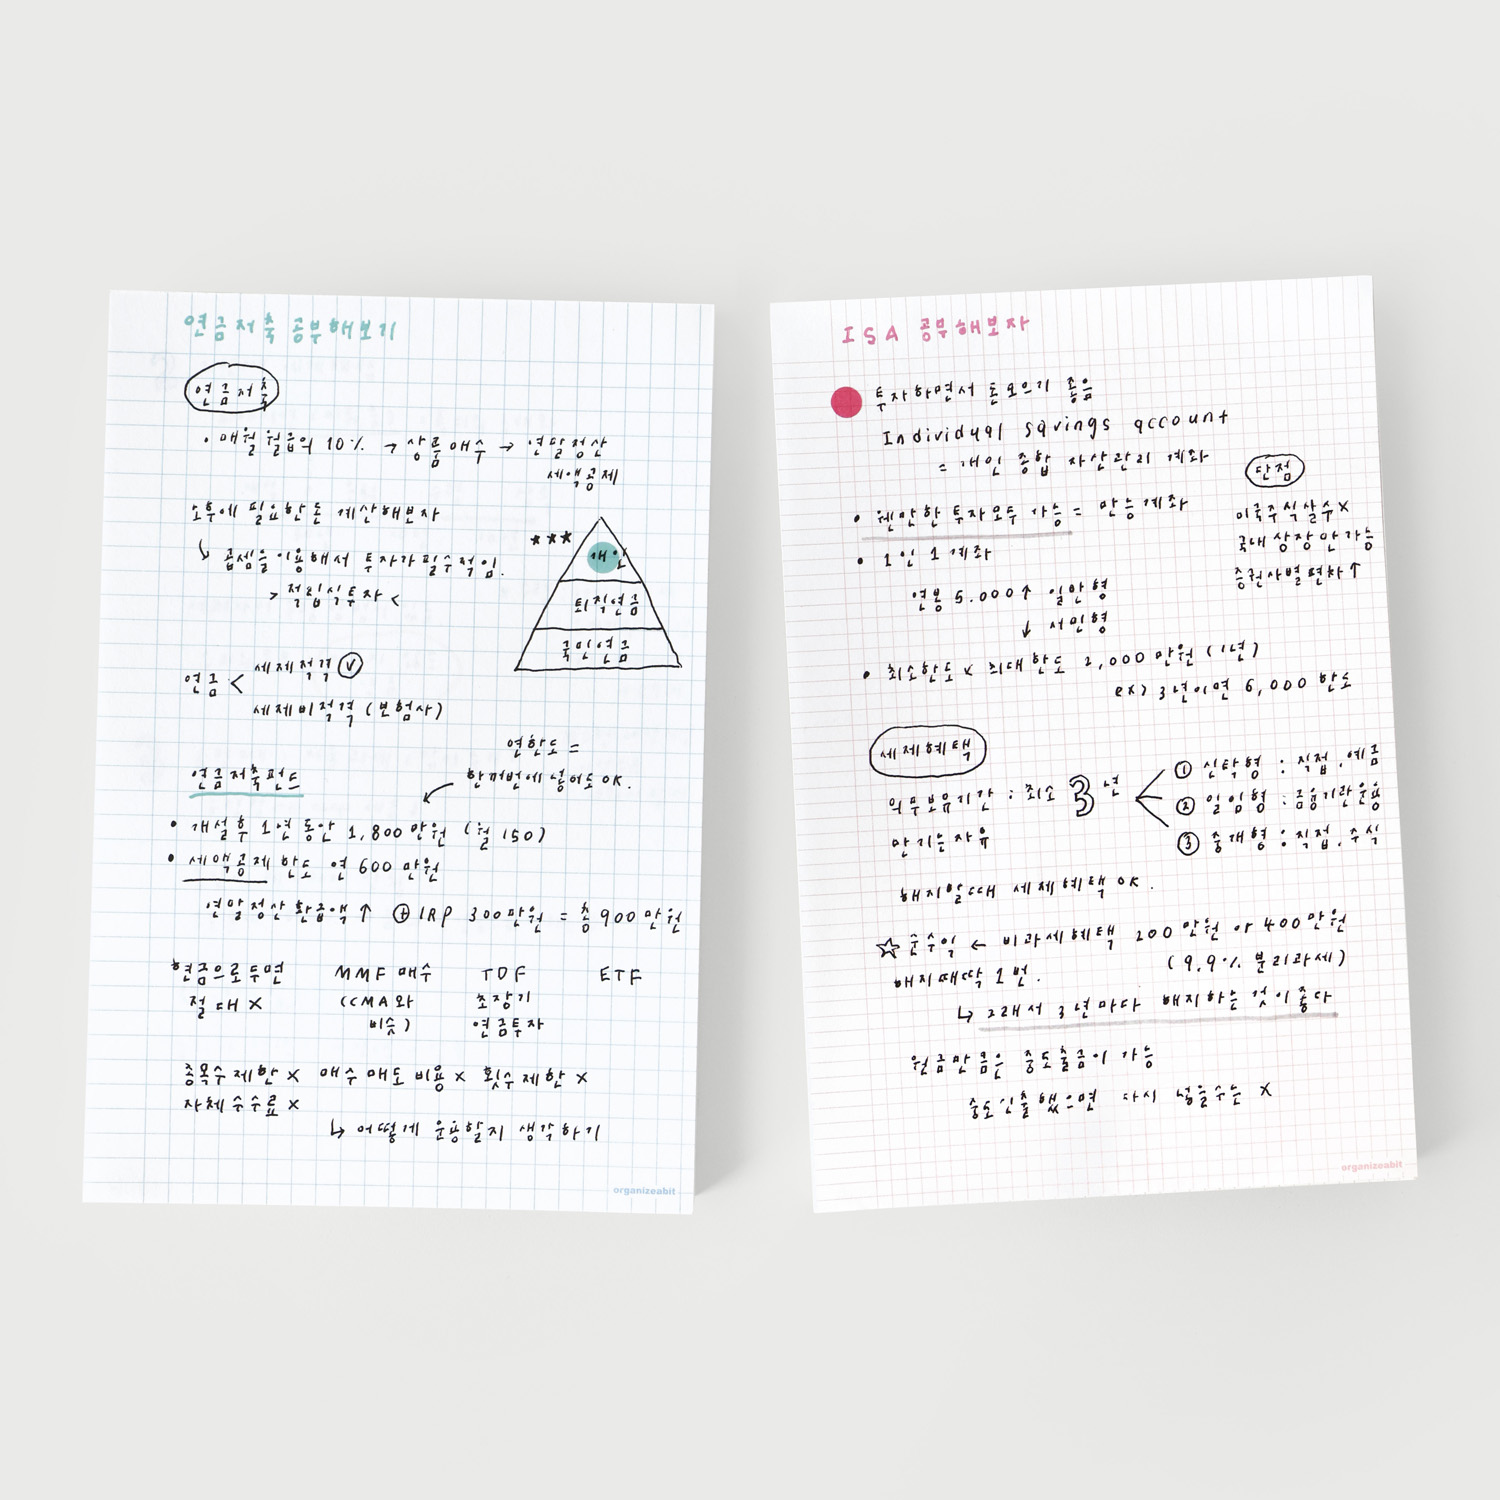 연금저축 공부해보기
연금저축
• 매월 월급의 10% → 상품매수 → 연말정산
세액공제
노후에 필요한돈 계산해보자
↳ 곱셈을 이용해서 투자가 필수적임.
> 적립식투자 <
★★★
개인
퇴직연금
국민연금
연금 < 세제적격 ✓
세제비적격 (보험사)
연한도 =
한꺼번에 넣어도 OK.
연금저축펀드
• 개설후 1년 동안 1,800만원 (월 150)
• 세액공제 한도 연 600만원
연말정산 환급액 ↑ ⊕ IRP 300만원 = 총 900만원
현금으로두면 MMF 매수 TDF ETF
절대 X (CMA와 초장기
비슷) 연금투자
종목수제한 X 매수매도비용 X 횟수제한 X
자체수수료 X
↳ 어떻게 운용할지 생각하기
organizeabit
ISA 공부해보자
투자하면서 돈모으기 좋음
Individual savings account
= 개인 종합 자산관리 계좌
• 웬만한 투자모두 가능 = 만능계좌
• 1인 1계좌
연봉 5.000↑ 일반형
↓ 서민형
단점
미국주식살수 X
국내상장만가능
증권사별편차↑
• 최소한도 X 최대한도 2,000만원 (1년)
ex) 3년이면 6,000 한도
세제혜택
의무보유기간 : 최소 3년
만기는자유
① 신탁형 : 직접. 예금
② 일임형 : 금융기관운용
③ 중개형 : 직접. 주식
해지할때 세제혜택 OK.
☆ 순수익 ← 비과세혜택 200만원 or 400만원
해지때딱 1번. (9.9% 분리과세)
↳ 그래서 3년마다 해지하는 것이좋다
원금만큼은 중도출금이 가능
중도인출했으면 다시 넣을수는 X
organizeabit